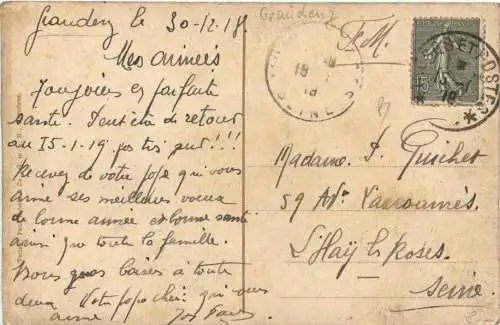 Graudenz le 30-12-18.
Mes aimées
Toujours en parfaite
santé. Peut être de retour
au 15-1-19 pas très sur!!!
Recevez de votre jojo qui vous
aime ses meilleures voeux
de bonne année et bonne santé
ainsi que toute la famille.
Bons gros baisers à toute
deux Votre jojo cheri qui vous
aime
Graudenz
F.M.
SEINE
POSTES
Madame J. Guichet
59 Av. Vauroumés.
L'Haÿ les Roses.
Seine.